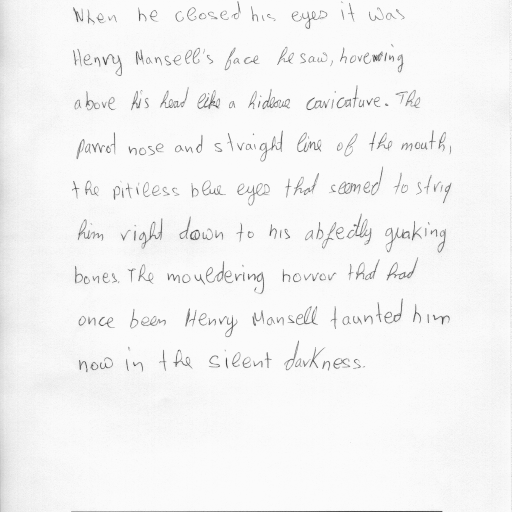 When he closed his eyes it was
Henry Mansell's face he saw, hovering
above his head like a hideous caricature. The
parrot nose and straight line of the mouth,
the pitiless blue eyes that seemed to strip
him right down to his abfectly quaking
bones. The mouldering horror that had
once been Henry Mansell taunted him
now in the silent darkness.